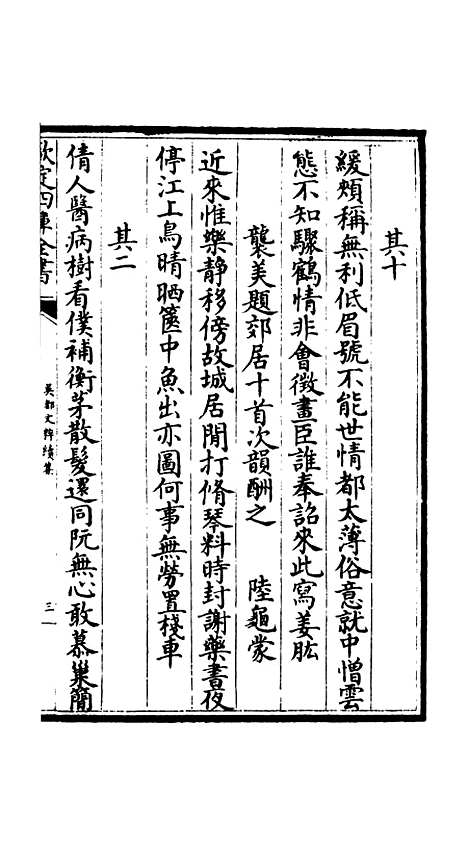 其十
緩頰稱無利低眉號不能世情都太薄俗意就中憎雲
態不知驟鶴情非會徵畫臣誰奉詔來此寫姜肱
襲美題郊居十首次韻酬之　陸龜蒙
近來惟樂静移傍故城居閒打脩琴料時封謝藥書夜
停江上鳥晴晒篋中魚出亦圖何事無勞置棧車
其二
倩人醫病樹看僕補衡茅散髮還同阮無心敢慕巢簡
欽定四庫全書
吴都文粹續集
三